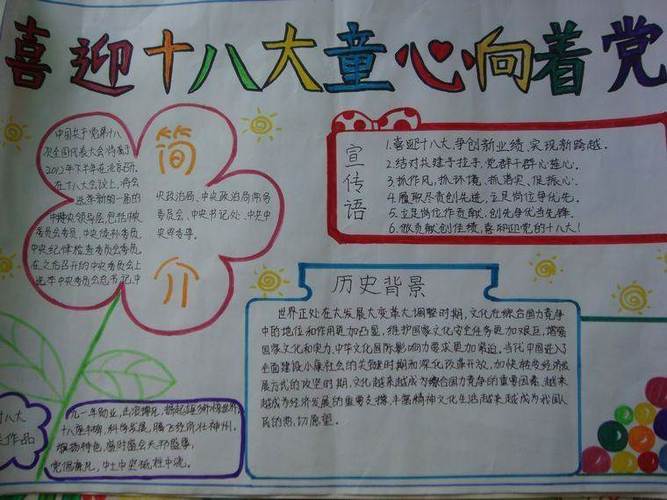 喜迎十八大童心向着党
简介
中国共产党第十八
次全国代表大会将于
2012年下半年在北京召开。
在十八大会议上，将会
选举新的一届的
中央领导层，包括中央
委员会委员、中央候补委员、
中央纪律检查委员会委员。
在之后召开的中央委员会上
选举中央委员会总书记、中
央政治局、中央政治局常务
委员会、中央书记处、中央
军委等。
宣传语
1.喜迎十八大、争创新业绩、实现新跨越。
2.结对共建手拉手，党群干群心连心。
3.抓作风，抓环境，抓落实，促振心。
4.履职尽责创先进，立足岗位争优先。
5.立足岗位作贡献，创先争优当先锋。
6.做贡献创佳绩，喜迎党的十八大！
历史背景
世界正处在大发展大变革大调整时期，文化在综合国力竞争
中的地位和作用更加凸显，维护国家文化安全任务更加艰巨，增强
国家文化软实力、中华文化国际影响力要求更加紧迫。当代中国进入了
全面建设小康社会的关键时期和深化改革开放、加快转变经济发
展方式的攻坚时期，文化越来越成为综合国力竞争的重要因素、越来
越成为经济发展的重要支撑，丰富精神文化生活越来越成为我国人
民的热切愿望。
十八大
作品